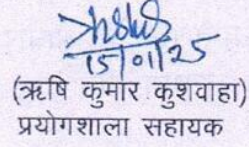 15/01/25
(ऋषि कुमार कुशवाहा)
प्रयोगशाला सहायक